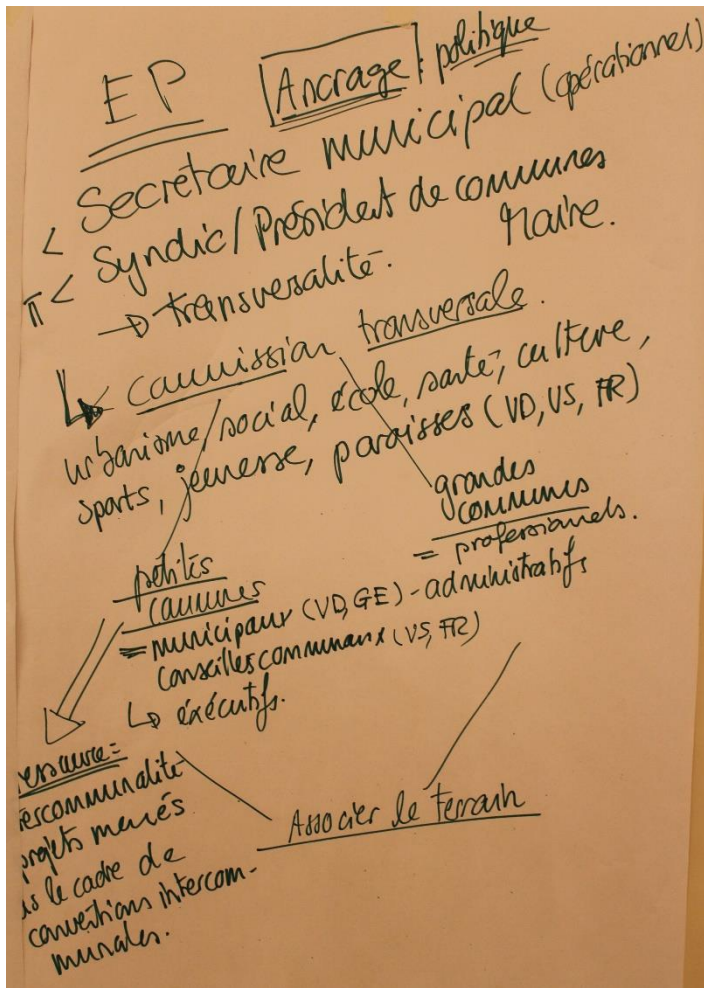 EP Ancrage : politique
< Secrétaire municipal (opérationnel)
< Syndic / Président de communes
Maire.
→ transversalité.
↳ commission transversale.
urbanisme, social, école, santé, culture,
sports, jeunesse, paroisses (VD, VS, FR)
grandes
communes
= professionnels.
petites
communes
= municipaux (VD, GE) - administratifs
Conseillers communaux (VS, FR)
↳ exécutifs.
essource =
ercommunalité
projets menés
s le cadre de
conventions intercom-
munales.
Associer le terrain